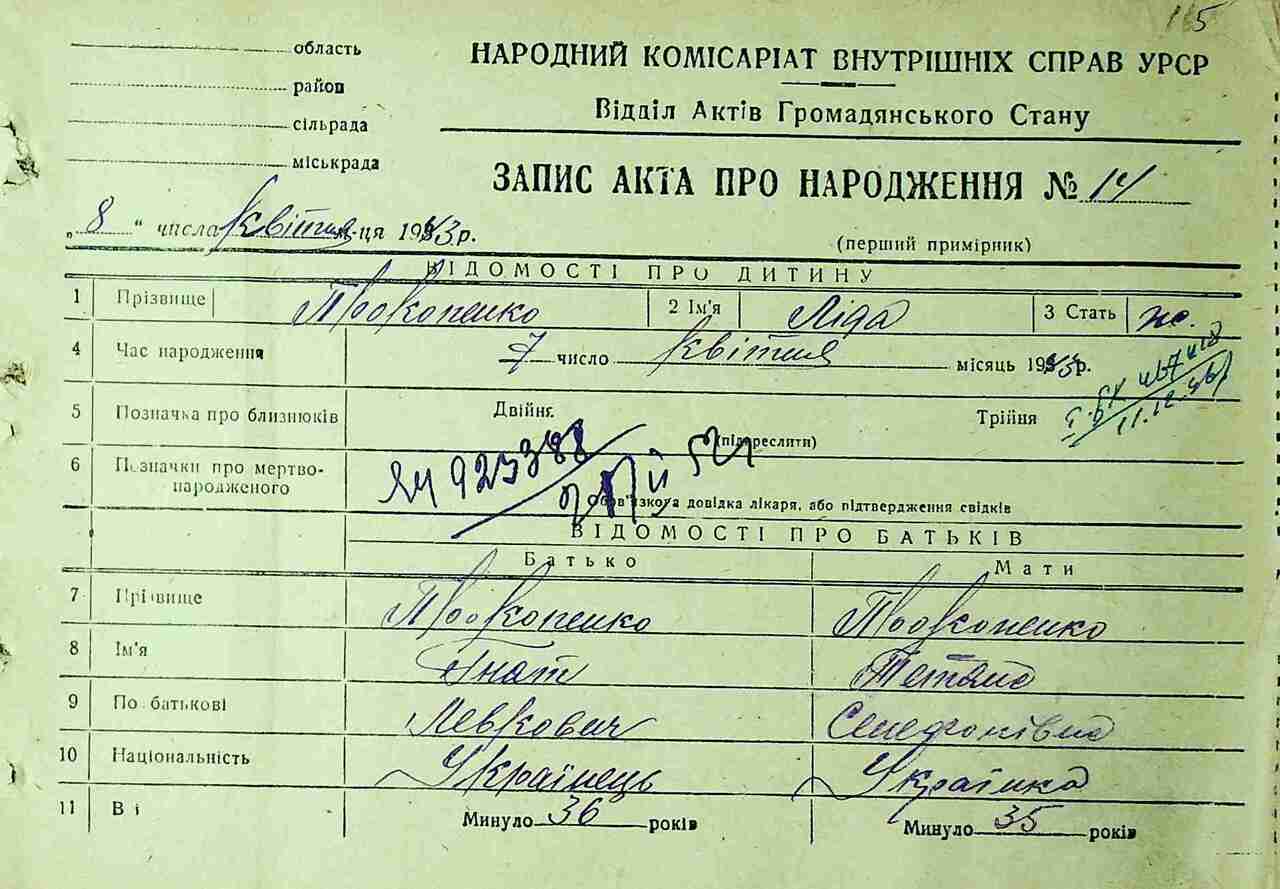 область
район
сільрада
міськрада
НАРОДНИЙ КОМІСАРІАТ ВНУТРІШНІХ СПРАВ УРСР
Відділ Актів Громадянського Стану
ЗАПИС АКТА ПРО НАРОДЖЕННЯ № 14
„8“ числа Квітня м-ця 1943 р.
(перший примірник)
ВІДОМОСТІ ПРО ДИТИНУ
1 Прізвище Прокопенко 2 Ім'я Ліда 3 Стать жс.
4 Час народження 7 число Квітня місяць 1943 р.
5 Позначка про близнюків Двійні Трійня
(підреслити)
6 Позначки про мертво-
народженого
923388
Обов'язкова довідка лікаря, або підтвердження свідків
ВІДОМОСТІ ПРО БАТЬКІВ
Батько Мати
7 Прізвище Прокопенко Прокопенко
8 Ім'я Гнат Тетяна
9 По батькові Левкович
10 Національність Українець Українка
11 Ві Минуло 36 років Минуло 35 років